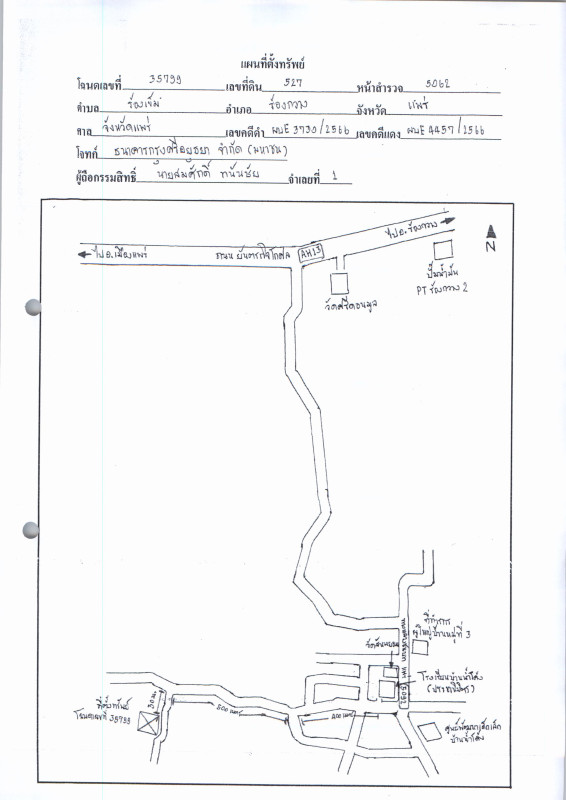 แผนที่ตั้งทรัพย์
โฉนดเลขที่ 35799 เลขที่ดิน 527 หน้าสำรวจ 5062
ตำบล ร้องเข็ม อำเภอ ร้องกวาง จังหวัด แพร่
ศาล จังหวัดแพร่ เลขคดีดำ ผบE 3730/2566 เลขคดีแดง ผบE 4457/2566
โจทก์ ธนาคารกรุงศรีอยุธยา จำกัด (มหาชน)
ผู้ถือกรรมสิทธิ์ นายสมศักดิ์ ทนันชัย จำเลยที่ 1
ไป อ.เมืองแพร่
ถนน ยันตรกิจโกศล
AH13
ไป อ.ร้องกวาง
N
ปั๊มน้ำมัน
PT ร้องกวาง 2
วัดศรีดอนมูล
ที่ทำการ
ผู้ใหญ่บ้านหมู่ที่ 3
โรงเรียนบ้านน้ำโค้ง
ศูนย์พัฒนาเด็กเล็ก
บ้านน้ำโค้ง
400 เมตร
500 เมตร
30 ม.
ที่ตั้งทรัพย์
โฉนดเลขที่ 35799